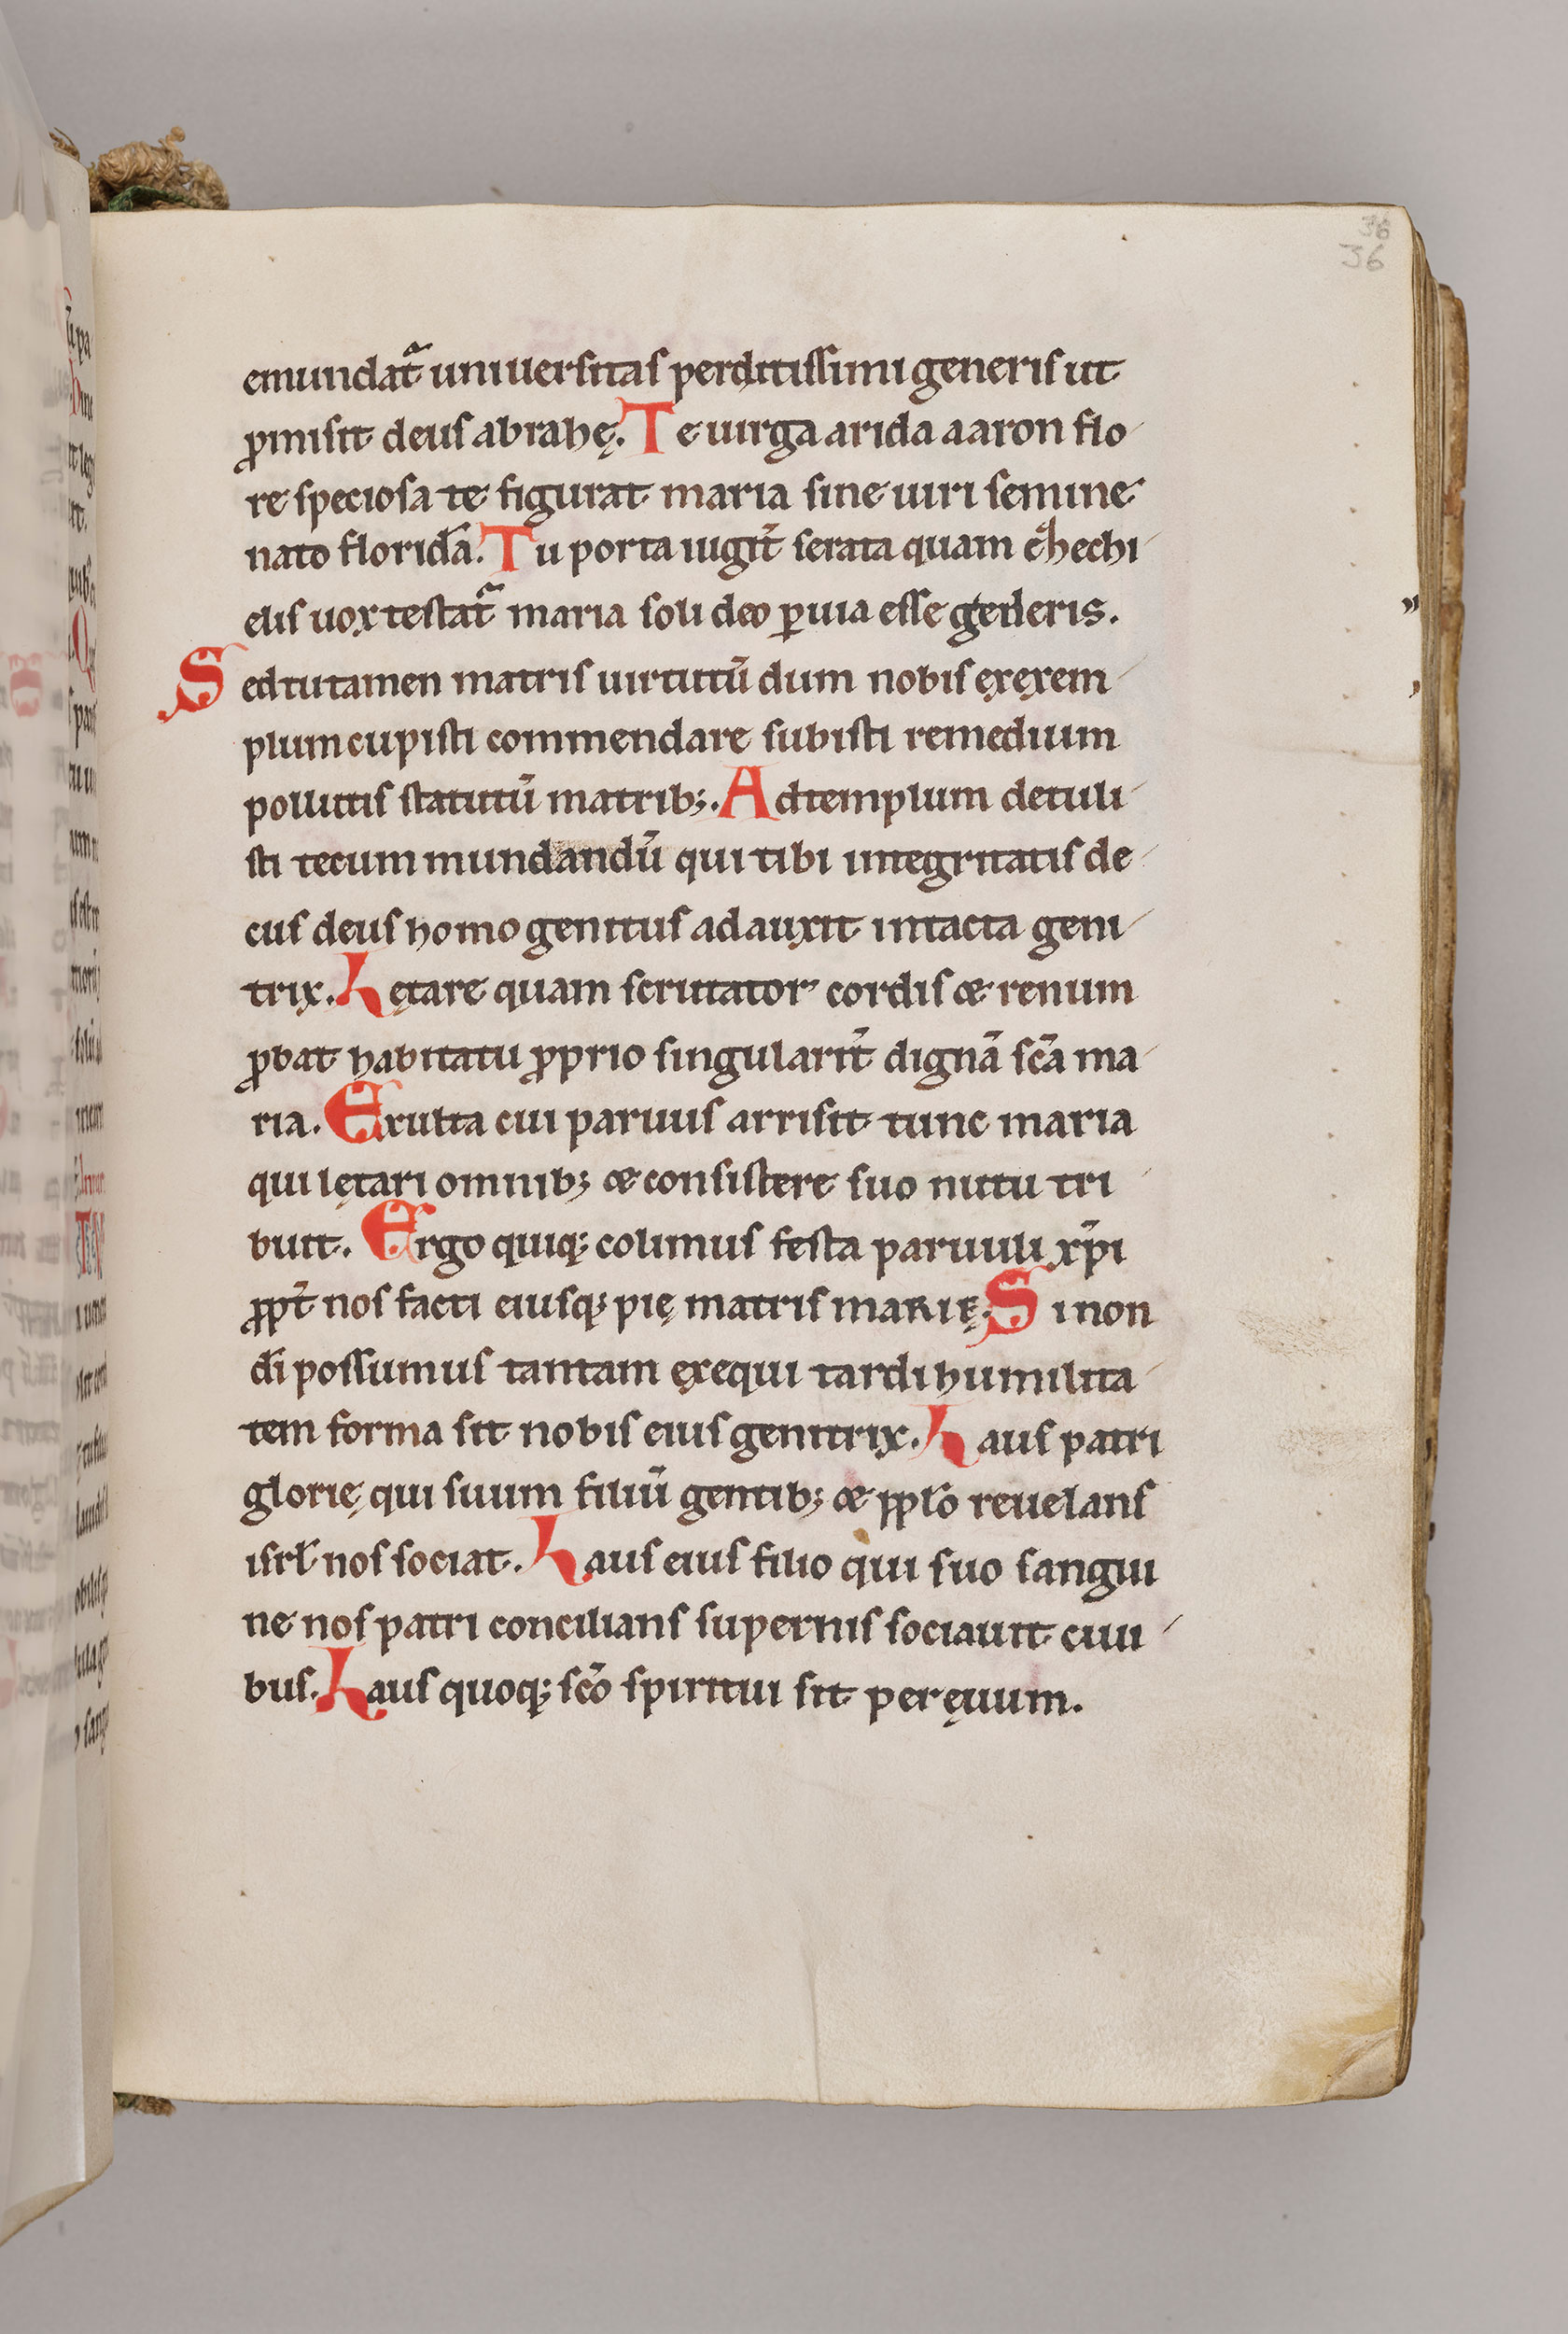 36
36
emundat᷑ uniuersitas perditissimi generis ut
ꝓmisit deus abrahę. Te uirga arida aaron flo
re speciosa te figurat maria sine uiri semine
nato florida᷑. Tu porta iugit̄ serata quam ehechi
elis uox testat᷑ maria soli deo ꝑuia esse crederis.
Sed tu tamen matris uirtutū dum nobis exem
plum cupisti commendare subisti remedium
pollutis statutū matribꝫ. Ad templum detuli
sti tecum mundandū qui tibi integritatis de
cus deus homo genitus adauxit intacta geni
trix. Lętare quam scrutator cordis & renum
ꝓbat habitatu ꝓprio singularit̄ dignā scā ma
ria. Exulta cui paruus arrisit tunc maria
qui lętari omnibꝫ & consistere suo nutu tri
buit. Ergo quiqꝫ colimus festa paruuli xp̄i
ꝓpt̄ nos facti eiusqꝫ pię matris marię. Si non
dī possumus tantam exequi tardi humilita
tem forma sit nobis eius genitrix. Laus patri
glorię qui suum filiū gentibꝫ & ppl̄o reuelans
isrl̄ nos sociat. Laus eius filio qui suo sangui
ne nos patri concilians supernis sociauit ciui
bus. Laus quoqꝫ scō spiritui sit per ęuum.